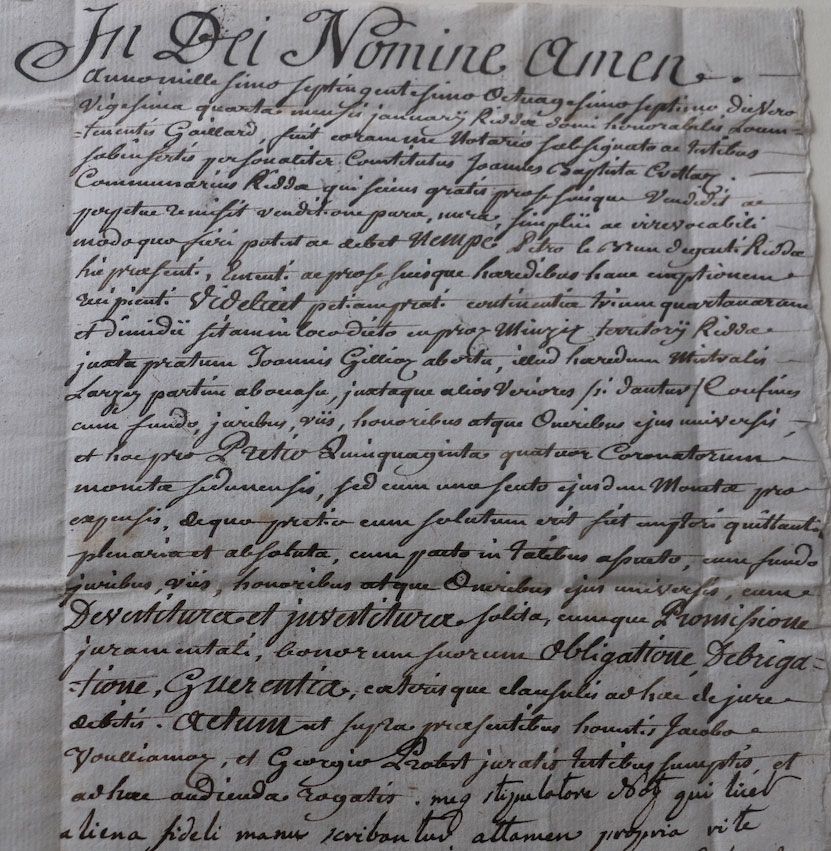 In Dei Nomine Amen.
Anno millesimo septingentesimo Octuagesimo septimo die Vero
Vigesima quarta mensis january Riddæ domi honorabilis Locum-
-tenentis Gaillard fuit coram me Notario subsignato ac Testibus
subinsertis personaliter Constitutus Joannes Baptista
Communarius Riddæ qui scieus gratis pro se suisque Vendidit ac
perpetue remisit venditione pura, mera, simplici ac irrevocabili
modo quo fieri potest ac debet Nempe Petro le Brun degenti Riddæ
hic præsenti, Ementi ac pro se suisque hæredibus hanc emptionem
recipienti Videlicet petiam prati continentiæ trium quartanarum
et dimidii sitam in loco dicto en proz Minzix territorÿ Riddæ
juxta pratum Joannis Gillioz ab ortu, illud hæredum Mistralis
Largez partim ab occasu, juxtaque alios Veriores si dantur / Confines
cum fundo, juribus, viis, honoribus atque Oneribus ejus universis,
et hoc pro Pretio Quinquaginta quatuor Coronatorum
monetæ sedunensis, sed cum uno scuto ejusdem Monetæ pro
expensis, de quo pretio cum solutum erit fiet emptori quittantia
plenaria et absoluta, cum pacto in talibus assueto, cum fundo
juribus, viis, honoribus atque Oneribus ejus universis, cum
Devestitura et juvestitura solita, cumque Promissione
juramentali, bonorum suorum Obligatione, Debriga-
-tione, Guerentia, cæterisque clausulis ad hæc de jure
debitis. Actum ut supra præsentibus honestis Jacobo
Voulliamoz, et Georgio Probst juratis testibus sumptis, et
ad hæc audienda rogatis. meq stipulatore Notº qui licet
aliena fideli manu scribantur, attamen propria rite